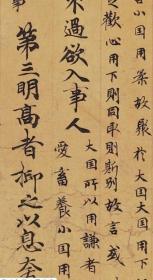 小国用柔故聚於大国大国用下
之歡心用下則國取則斯别故言或
不過欲入事人
大国所以用謙者
愛畜養小国用
第三明高者抑之以息